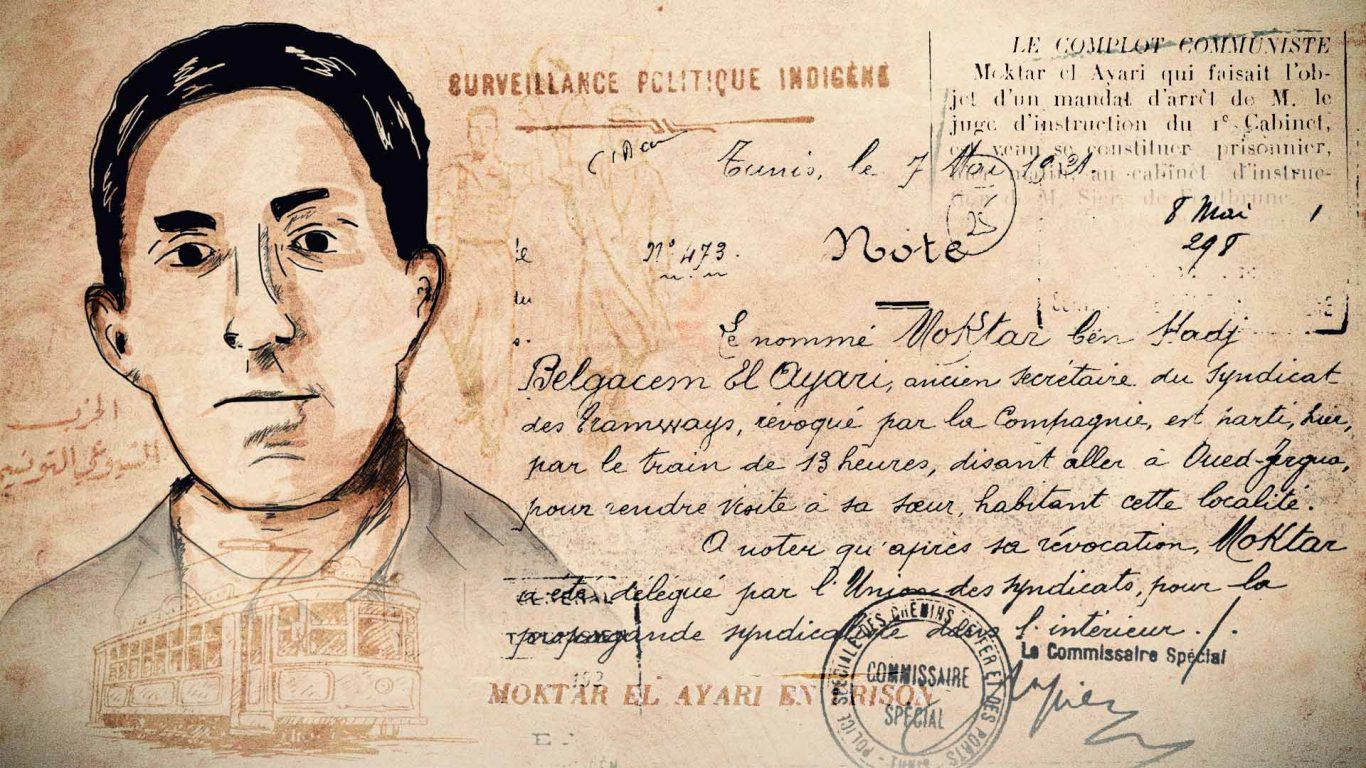 SURVEILLANCE POLITIQUE INDIGÈNE
LE COMPLOT COMMUNISTE
Moktar el Ayari qui faisait l'ob-
jet d'un mandat d'arrêt de M. le
juge d'instruction du 1e Cabinet,
est venu se constituer prisonnier,
au cabinet d'instruc-
tion de M.
Tunis, le 7 Mai
25
8 Mai
298
N° 473.
Note
Le nommé Moktar ben Hadj
Belgacem El Ayari, ancien secrétaire du Syndicat
des Tramways, révoqué par la Compagnie, est parti, hier,
par le train de 13 heures, disant aller à Oued-Zrgua,
pour rendre visite à sa sœur, habitant cette localité.
A noter qu'après sa révocation, Moktar
a été délégué par l'Union des syndicats, pour la
propagande syndicaliste dans l'intérieur./.
Le Commissaire Spécial
الحزب
الشيوعي التونسي
MOKTAR EL AYARI EN PRISON
POLICE SPÉCIALE DES CHEMINS DE FER ET DES PORTS
COMMISSAIRE
SPÉCIAL